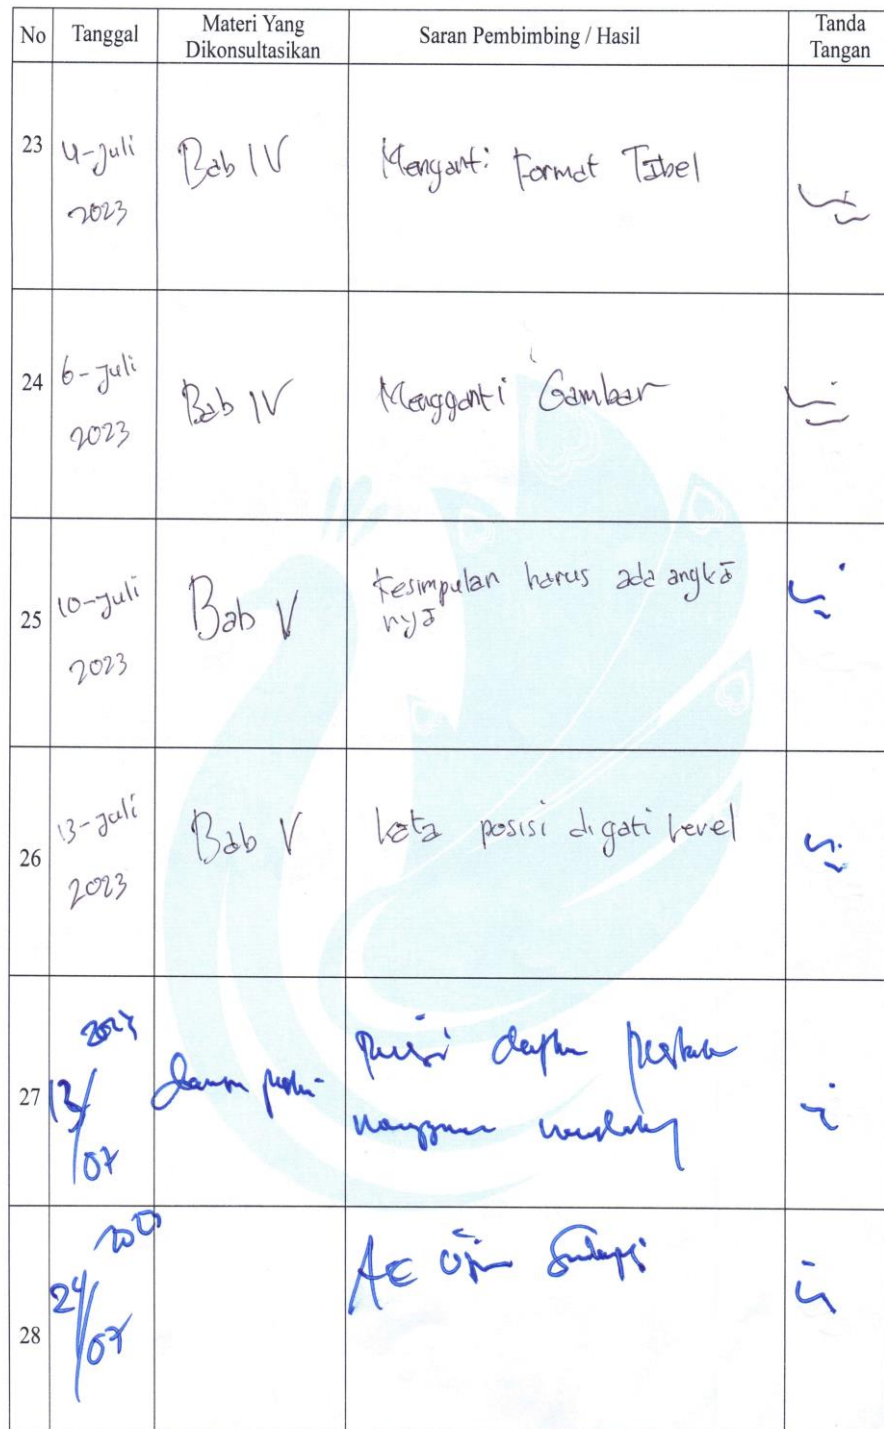 No Tanggal Materi Yang Dikonsultasikan Saran Pembimbing / Hasil Tanda Tangan
23 4-Juli 2023 Bab IV Menganti Format Tabel
24 6-Juli 2023 Bab IV Mengganti Gambar
25 10-Juli 2023 Bab V Kesimpulan harus ada angka nya
26 13-Juli 2023 Bab V kata posisi digati level
27 13/07 2023 daftar
28 24/07